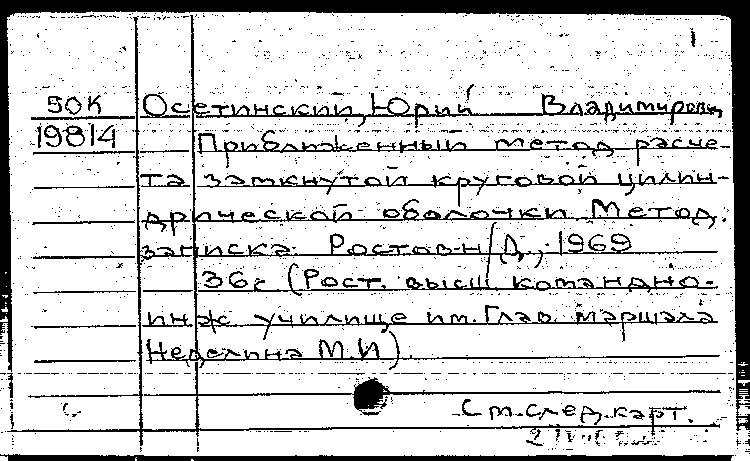 1
50К Осетинский, Юрий Владимирович
19814 Приближенный метод расче-
та замкнутой круговой цилин-
дрической оболочки. Метод.
записка. Ростов-н/Д., 1969
36с (Рост. высш. командно-
инж училище им. Глав. маршала
Неделина М.И).
См. след. карт.